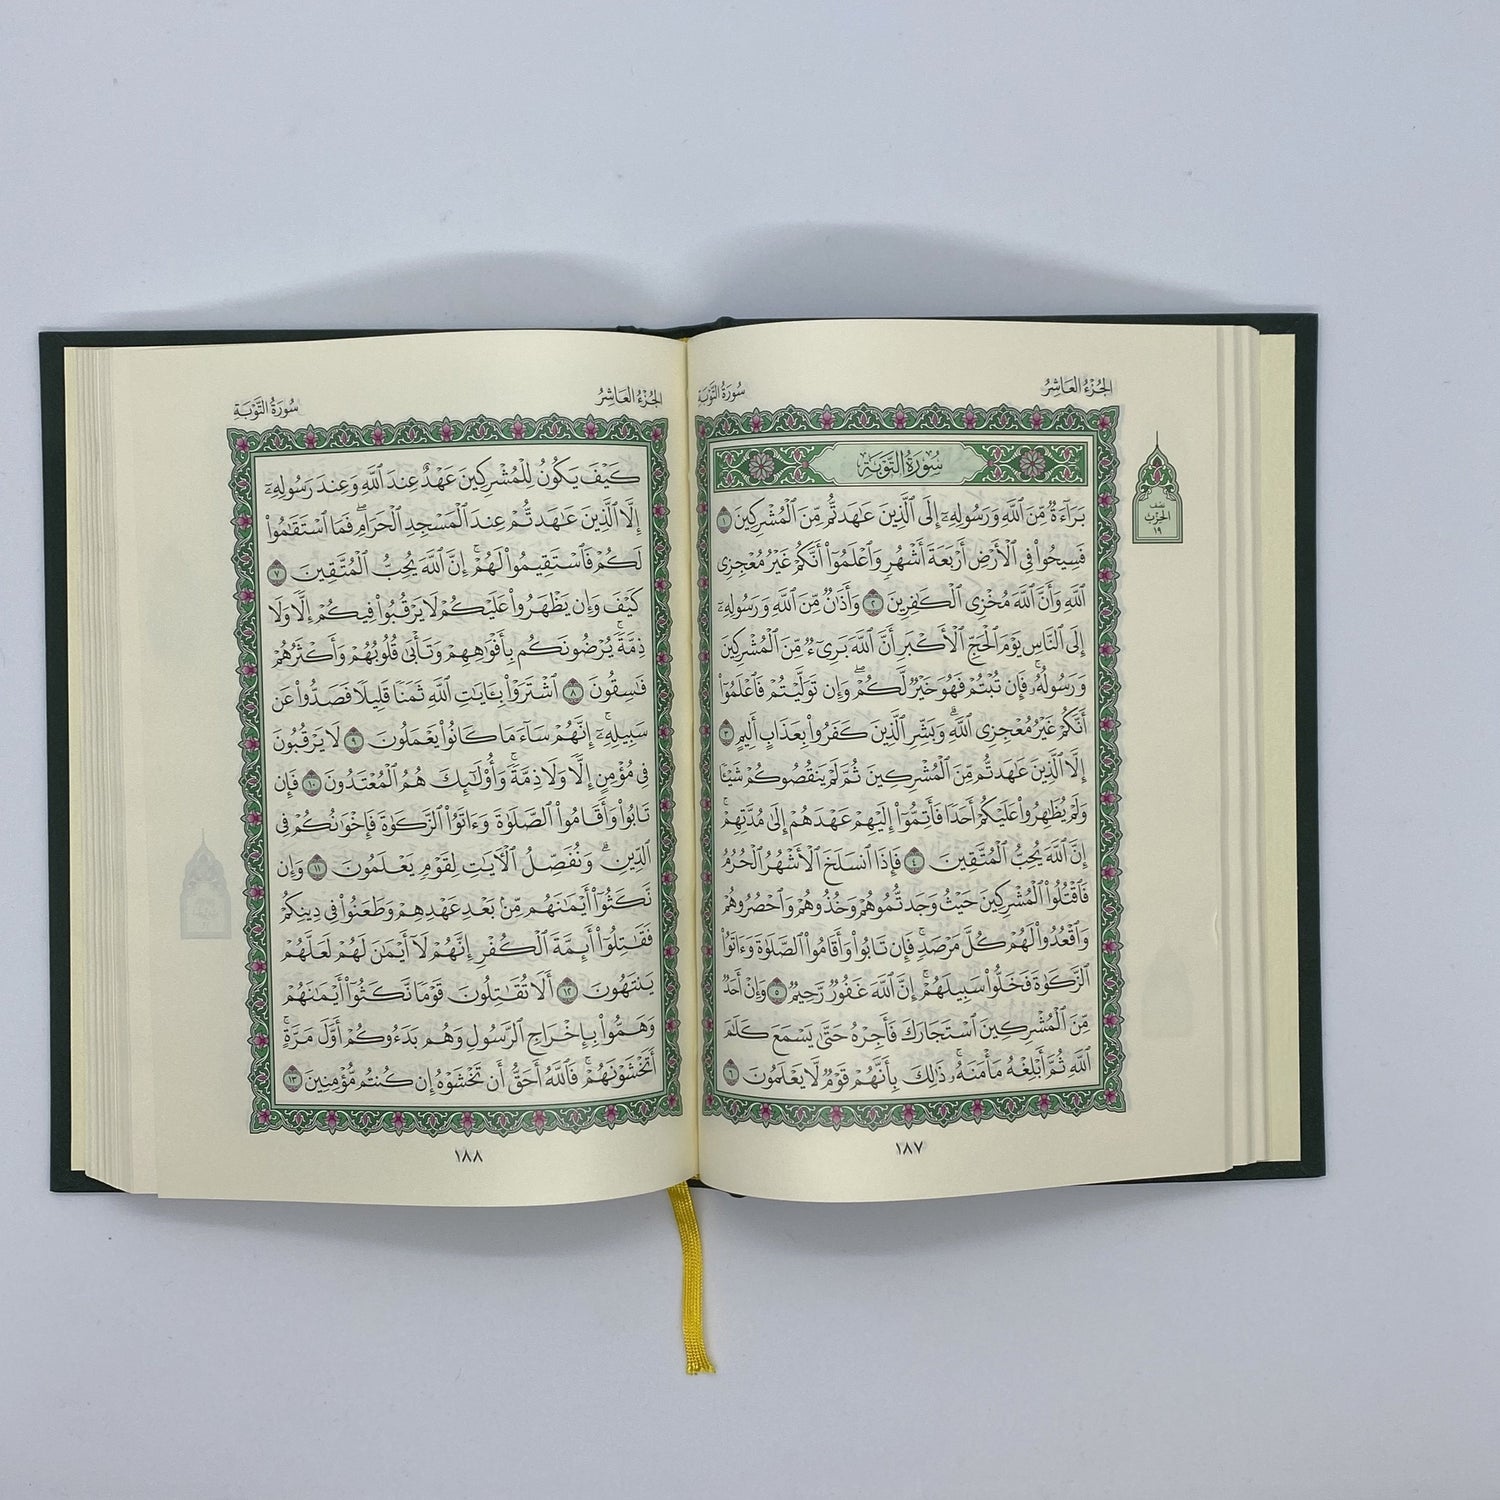 الجُزْءُ العَاشِرُ
سُورَةُ التَّوْبَةِ
سُورَةُ التَّوْبَةِ
نصف
الحِزْب
١٩
بَرَآءَةٌ مِّنَ ٱللَّهِ وَرَسُولِهِۦٓ إِلَى ٱلَّذِينَ عَٰهَدتُّم مِّنَ ٱلْمُشْرِكِينَ ١
فَسِيحُوا۟ فِى ٱلْأَرْضِ أَرْبَعَةَ أَشْهُرٍ وَٱعْلَمُوٓا۟ أَنَّكُمْ غَيْرُ مُعْجِزِى
ٱللَّهِ وَأَنَّ ٱللَّهَ مُخْزِى ٱلْكَٰفِرِينَ ٢ وَأَذَٰنٌ مِّنَ ٱللَّهِ وَرَسُولِهِۦٓ
إِلَى ٱلنَّاسِ يَوْمَ ٱلْحَجِّ ٱلْأَكْبَرِ أَنَّ ٱللَّهَ بَرِىٓءٌ مِّنَ ٱلْمُشْرِكِينَ
وَرَسُولُهُۥ ۚ فَإِن تُبْتُمْ فَهُوَ خَيْرٌ لَّكُمْ ۖ وَإِن تَوَلَّيْتُمْ فَٱعْلَمُوٓا۟
أَنَّكُمْ غَيْرُ مُعْجِزِى ٱللَّهِ ۗ وَبَشِّرِ ٱلَّذِينَ كَفَرُوا۟ بِعَذَابٍ أَلِيمٍ ٣
إِلَّا ٱلَّذِينَ عَٰهَدتُّم مِّنَ ٱلْمُشْرِكِينَ ثُمَّ لَمْ يَنقُصُوكُمْ شَيْـًٔا
وَلَمْ يُظَٰهِرُوا۟ عَلَيْكُمْ أَحَدًا فَأَتِمُّوٓا۟ إِلَيْهِمْ عَهْدَهُمْ إِلَىٰ مُدَّتِهِمْ ۚ
إِنَّ ٱللَّهَ يُحِبُّ ٱلْمُتَّقِينَ ٤ فَإِذَا ٱنسَلَخَ ٱلْأَشْهُرُ ٱلْحُرُمُ
فَٱقْتُلُوا۟ ٱلْمُشْرِكِينَ حَيْثُ وَجَدتُّمُوهُمْ وَخُذُوهُمْ وَٱحْصُرُوهُمْ
وَٱقْعُدُوا۟ لَهُمْ كُلَّ مَرْصَدٍ ۚ فَإِن تَابُوا۟ وَأَقَامُوا۟ ٱلصَّلَوٰةَ وَءَاتَوُا۟
ٱلزَّكَوٰةَ فَخَلُّوا۟ سَبِيلَهُمْ ۚ إِنَّ ٱللَّهَ غَفُورٌ رَّحِيمٌ ٥ وَإِنْ أَحَدٌ
مِّنَ ٱلْمُشْرِكِينَ ٱسْتَجَارَكَ فَأَجِرْهُ حَتَّىٰ يَسْمَعَ كَلَٰمَ
ٱللَّهِ ثُمَّ أَبْلِغْهُ مَأْمَنَهُۥ ۚ ذَٰلِكَ بِأَنَّهُمْ قَوْمٌ لَّا يَعْلَمُونَ ٦
١٨٧
الجُزْءُ العَاشِرُ
سُورَةُ التَّوْبَةِ
كَيْفَ يَكُونُ لِلْمُشْرِكِينَ عَهْدٌ عِندَ ٱللَّهِ وَعِندَ رَسُولِهِۦٓ
إِلَّا ٱلَّذِينَ عَٰهَدتُّمْ عِندَ ٱلْمَسْجِدِ ٱلْحَرَامِ ۖ فَمَا ٱسْتَقَٰمُوا۟
لَكُمْ فَٱسْتَقِيمُوا۟ لَهُمْ ۚ إِنَّ ٱللَّهَ يُحِبُّ ٱلْمُتَّقِينَ ٧
كَيْفَ وَإِن يَظْهَرُوا۟ عَلَيْكُمْ لَا يَرْقُبُوا۟ فِيكُمْ إِلًّا وَلَا
ذِمَّةً ۚ يُرْضُونَكُم بِأَفْوَٰهِهِمْ وَتَأْبَىٰ قُلُوبُهُمْ وَأَكْثَرُهُمْ
فَٰسِقُونَ ٨ ٱشْتَرَوْا۟ بِـَٔايَٰتِ ٱللَّهِ ثَمَنًا قَلِيلًا فَصَدُّوا۟ عَن
سَبِيلِهِۦٓ ۚ إِنَّهُمْ سَآءَ مَا كَانُوا۟ يَعْمَلُونَ ٩ لَا يَرْقُبُونَ
فِى مُؤْمِنٍ إِلًّا وَلَا ذِمَّةً ۚ وَأُو۟لَٰٓئِكَ هُمُ ٱلْمُعْتَدُونَ ١٠ فَإِن
تَابُوا۟ وَأَقَامُوا۟ ٱلصَّلَوٰةَ وَءَاتَوُا۟ ٱلزَّكَوٰةَ فَإِخْوَٰنُكُمْ فِى
ٱلدِّينِ ۗ وَنُفَصِّلُ ٱلْـَٔايَٰتِ لِقَوْمٍ يَعْلَمُونَ ١١ وَإِن
نَّكَثُوٓا۟ أَيْمَٰنَهُم مِّنۢ بَعْدِ عَهْدِهِمْ وَطَعَنُوا۟ فِى دِينِكُمْ
فَقَٰتِلُوٓا۟ أَئِمَّةَ ٱلْكُفْرِ ۙ إِنَّهُمْ لَآ أَيْمَٰنَ لَهُمْ لَعَلَّهُمْ
يَنتَهُونَ ١٢ أَلَا تُقَٰتِلُونَ قَوْمًا نَّكَثُوٓا۟ أَيْمَٰنَهُمْ
وَهَمُّوا۟ بِإِخْرَاجِ ٱلرَّسُولِ وَهُم بَدَءُوكُمْ أَوَّلَ مَرَّةٍ ۚ
أَتَخْشَوْنَهُمْ ۚ فَٱللَّهُ أَحَقُّ أَن تَخْشَوْهُ إِن كُنتُم مُّؤْمِنِينَ ١٣
١٨٨